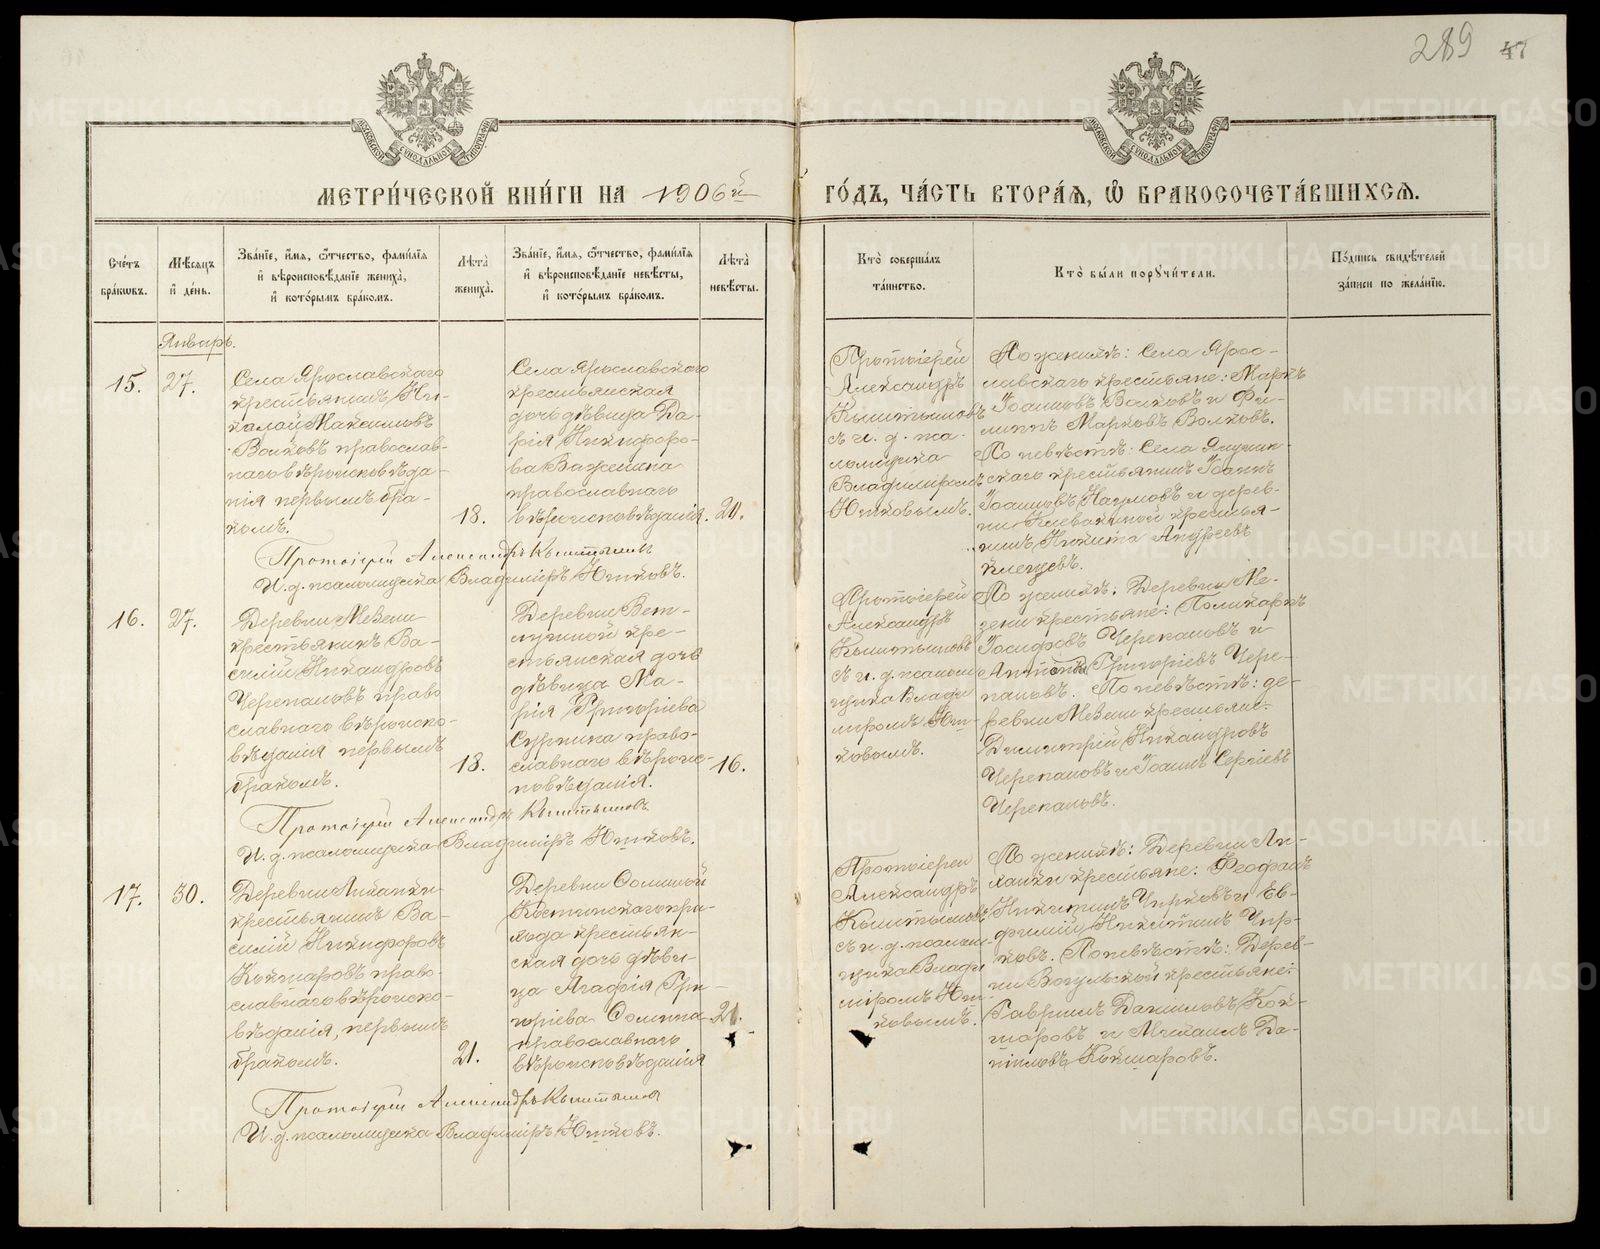 289 47
МЕТРИ́ЧЕСКОЙ КНИ́ГИ НА 1906й ГО́ДЪ, ЧА́СТЬ ВТОРА́Ѧ, Ѡ БРАКОСОЧЕТА́ВШИХСѦ.
Сче́тъ
бра́кѡвъ.
Мѣ́сѧцъ
и҆ де́нь.
Зва́нїе, и҆́мѧ, ѻ҆́тчество, фами́лїѧ
и҆ вѣроисповѣ́данїе жениха̀,
и҆ кото́рымъ бра́комъ.
Лѣ́та
жениха̀.
Зва́нїе, и҆́мѧ, ѻ҆́тчество, фами́лїѧ
и҆ вѣроисповѣ́данїе невѣ́сты,
и҆ кото́рымъ бра́комъ.
Лѣ́та
невѣ́сты.
Кто̀ соверша́лъ
та́инство.
Кто̀ бы́ли порꙋчи́тели.
По́дпись свидѣ́телей
за́писи по жела́нїю.
Январь.
15.
27.
Села Ярославскаго
крестьянинъ Ни-
колай Максимовъ
Волковъ православ-
наго вѣроисповѣда-
нія первымъ бра-
комъ.
18.
Села Ярославскаго
крестьянская
дочь дѣвица Да-
рія Никифоро-
ва Важенина
православнаго
вѣроисповѣданія.
21.
Протоіерей
Александръ
Кыштымовъ
съ и. д. пса-
ломщика
Владиміромъ
Ютковымъ.
По женихѣ: Села Яросл-
лавскаго крестьяне: Маркъ
Іоанновъ Волковъ и Фи-
липпъ Марковъ Волковъ.
По невѣстѣ: Села
скаго крестьянинъ Іоаннъ
Іоанновъ Наумовъ и дерев-
ни Клевакиной крестья-
нинъ Никита Андреевъ
Клевцевъ.
Протоіерей Александръ Кыштымовъ
И. д. псаломщика Владиміръ Ютковъ.
16.
27.
Деревни Мезени
крестьянинъ Ва-
силій Никандровъ
Черепановъ право
славнаго вѣроиспо-
вѣданія первымъ
бракомъ.
18.
Деревни Вет-
лужной кре-
стьянская дочь
дѣвица Ма-
рія Григоріева
Сурнина право-
славнаго вѣроис-
повѣданія.
16.
Протоіерей
Александръ
Кыштымовъ
съ и. д. псалом
щика Влади
міромъ Ют-
ковымъ.
По женихѣ: Деревни Ме-
зени крестьяне: Поликарпъ
Іосифовъ Черепановъ и
Григоріевъ Чере-
пановъ. По невѣстѣ: де-
ревни Мезени крестьяне:
Димитрій Никандровъ
Черепановъ и Іоаннъ Сергіевъ
Черепановъ.
Протоіерей Александръ Кыштымовъ
И. д. псаломщика Владиміръ Ютковъ.
17.
30.
Деревни Липанки
крестьянинъ Ва-
силій Никифоровъ
Кокшаровъ право-
славнаго вѣроиспо-
вѣданія, первымъ
бракомъ.
21.
Деревни Соминой
Костинскаго при-
хода крестьян-
ская дочь дѣви-
ца Агафія Гри-
горіева Сомина
православнаго
вѣроисповѣданія
21.
Протоіерей
Александръ
Кыштымовъ
съ и. д. псалом-
щика Влади
міромъ Ют-
ковымъ.
По женихѣ: Деревни Ли-
панки крестьяне: Феофанъ
Никитинъ Чирковъ и Ев-
фимій Никитинъ Чир-
ковъ. По невѣстѣ: Дерев-
ни Вогульской крестьяне:
Гавріилъ Даниловъ Кок-
шаровъ и Михаилъ Да-
ниловъ Кокшаровъ.
Протоіерей Александръ Кыштымовъ
И. д. псаломщика Владиміръ Ютковъ.
METRIKI.GASO-URAL.RU